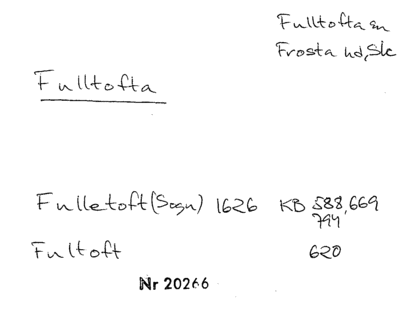 Fulltofta sn
Frosta hd, Sk
Fulltofta
Fulletoft (Sogn) 1626 KB 588, 669
794
Fultoft 620
Nr 20266